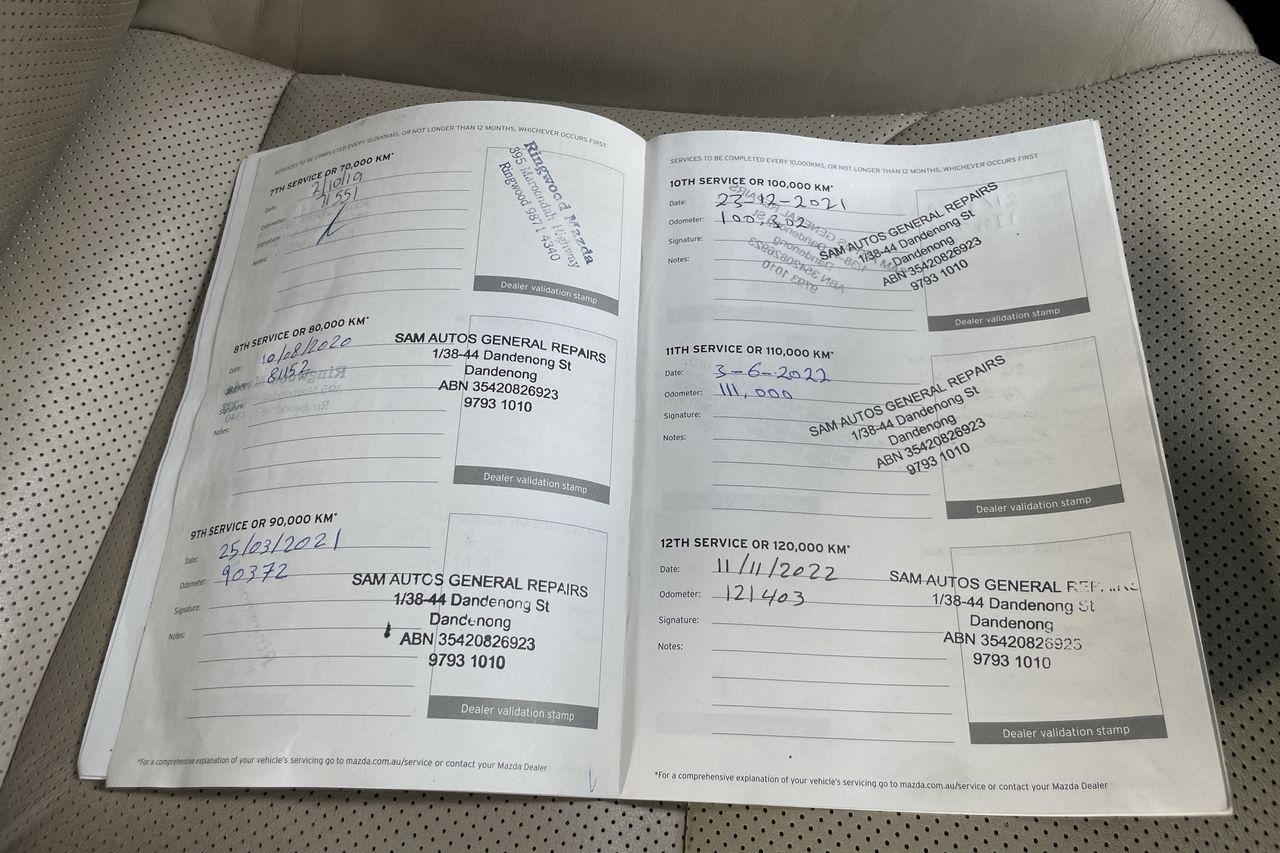 SERVICES TO BE COMPLETED EVERY 10,000KMS, OR NOT LONGER THAN 12 MONTHS, WHICHEVER OCCURS FIRST
7TH SERVICE OR 70,000 KM*
Date: 2/10/19
Odometer: 71551
Signature:
Notes:
Ringwood Mazda
395 Maroondah Highway
Ringwood 9871 4340
Dealer validation stamp
8TH SERVICE OR 80,000 KM*
Date: 10/08/2020
Odometer: 81152
Signature:
Notes:
SAM AUTOS GENERAL REPAIRS
1/38-44 Dandenong St
Dandenong
ABN 35420826923
9793 1010
Dealer validation stamp
9TH SERVICE OR 90,000 KM*
Date: 25/03/2021
Odometer: 90372
Signature:
Notes:
SAM AUTOS GENERAL REPAIRS
1/38-44 Dandenong St
Dandenong
ABN 35420826923
9793 1010
Dealer validation stamp
*For a comprehensive explanation of your vehicle's servicing go to mazda.com.au/service or contact your Mazda Dealer
SERVICES TO BE COMPLETED EVERY 10,000KMS, OR NOT LONGER THAN 12 MONTHS, WHICHEVER OCCURS FIRST
10TH SERVICE OR 100,000 KM*
Date: 23-12-2021
Odometer: 100,302
Signature:
Notes:
SAM AUTOS GENERAL REPAIRS
1/38-44 Dandenong St
Dandenong
ABN 35420826923
9793 1010
Dealer validation stamp
11TH SERVICE OR 110,000 KM*
Date: 3-6-2022
Odometer: 111,000
Signature:
Notes:
SAM AUTOS GENERAL REPAIRS
1/38-44 Dandenong St
Dandenong
ABN 35420826923
9793 1010
Dealer validation stamp
12TH SERVICE OR 120,000 KM*
Date: 11/11/2022
Odometer: 121403
Signature:
Notes:
SAM AUTOS GENERAL REPAIRS
1/38-44 Dandenong St
Dandenong
ABN 35420826923
9793 1010
Dealer validation stamp
*For a comprehensive explanation of your vehicle's servicing go to mazda.com.au/service or contact your Mazda Dealer